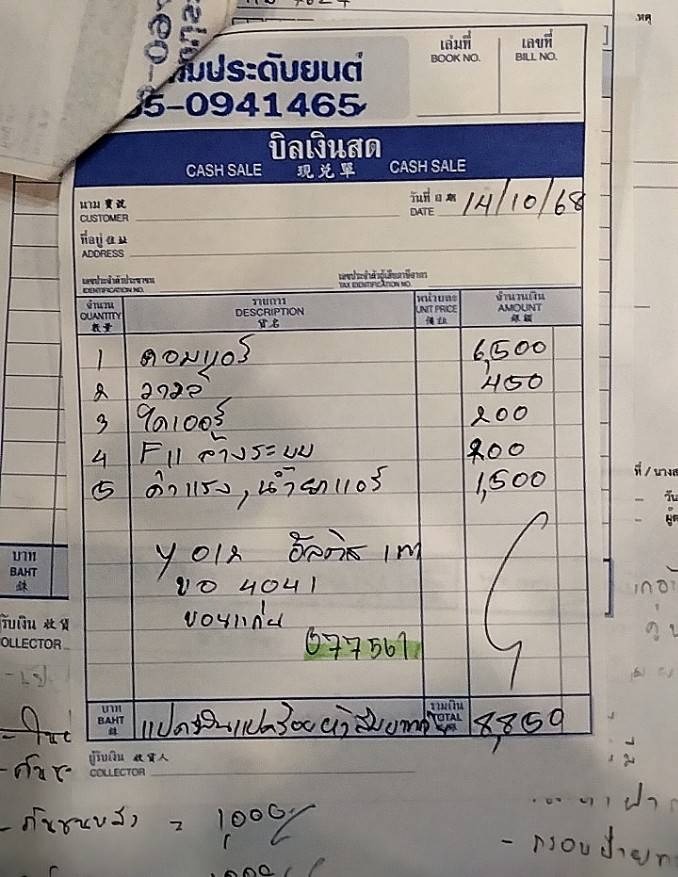 ประดับยนต์
5-0941465
เล่มที่ เลขที่
BOOK NO. BILL NO.
บิลเงินสด
CASH SALE 現兌單 CASH SALE
นาม 寶號
CUSTOMER
วันที่ 日期
DATE 14/10/68
ที่อยู่ 住址
ADDRESS
เลขประจำตัวประชาชน เลขประจำตัวผู้เสียภาษีอากร
IDENTIFICATION NO. TAX IDENTIFICATION NO.
จำนวน รายการ หน่วยละ จำนวนเงิน
QUANTITY DESCRIPTION UNIT PRICE AMOUNT
數量 貨名 價銀 銀額
1 คอมแอร์ 6,500
2 วาล์ว 450
3 ไดเออร์ 200
4 F11 ล้างระบบ 200
5 ค่าแรง, น้ำยาแอร์ 1,500
อัลติส เทา
ขอ 4041
ขอนแก่น
077561
บาท
BAHT
銖
แปดพันแปดร้อยห้าสิบบาท
รวมเงิน
TOTAL
8,850
ผู้รับเงิน 收貨人
COLLECTOR
บาท
BAHT
銖
รับเงิน
OLLECTOR
= 1,000